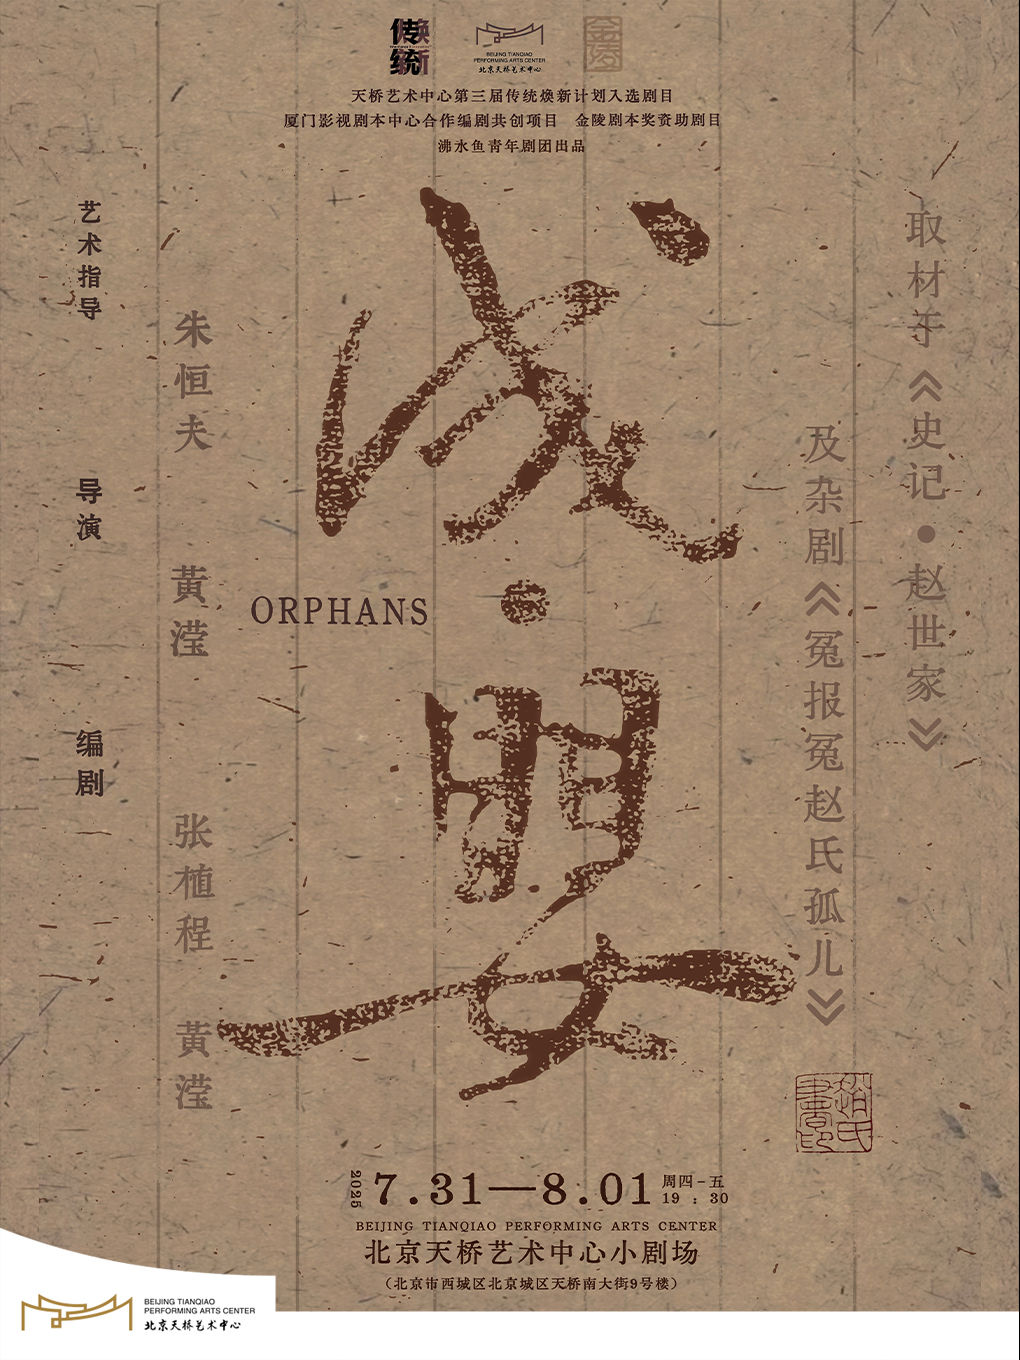 传统焕新
BEIJING TIANQIAO
PERFORMING ARTS CENTER
北京天桥艺术中心
金陵
天桥艺术中心第三届传统焕新计划入选剧目
厦门影视剧本中心合作编剧共创项目 金陵剧本奖资助剧目
沸水鱼青年剧团出品
取材于《史记·赵世家》
及杂剧《冤报冤赵氏孤儿》
成·婴
ORPHANS
艺术指导
朱恒夫
导演
黄滢
编剧
张植程 黄滢
2025
7.31—8.01
周四-五
19：30
BEIJING TIANQIAO PERFORMING ARTS CENTER
北京天桥艺术中心小剧场
（北京市西城区北京城区天桥南大街9号楼）
BEIJING TIANQIAO
PERFORMING ARTS CENTER
北京天桥艺术中心